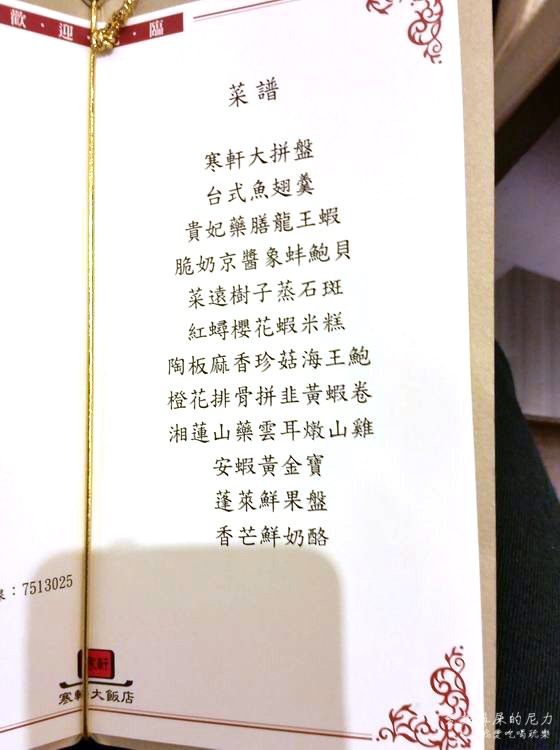 歡・迎・臨
菜譜
寒軒大拼盤
台式魚翅羹
貴妃藥膳龍王蝦
脆奶京醬象蚌鮑貝
菜遠樹子蒸石斑
紅蟳櫻花蝦米糕
陶板麻香珍菇海王鮑
橙花排骨拼韭黃蝦卷
湘蓮山藥雲耳燉山雞
安蝦黃金寶
蓬萊鮮果盤
香芒鮮奶酪
：7513025
寒軒
寒軒大飯店
屎的尼力
吃喝玩樂